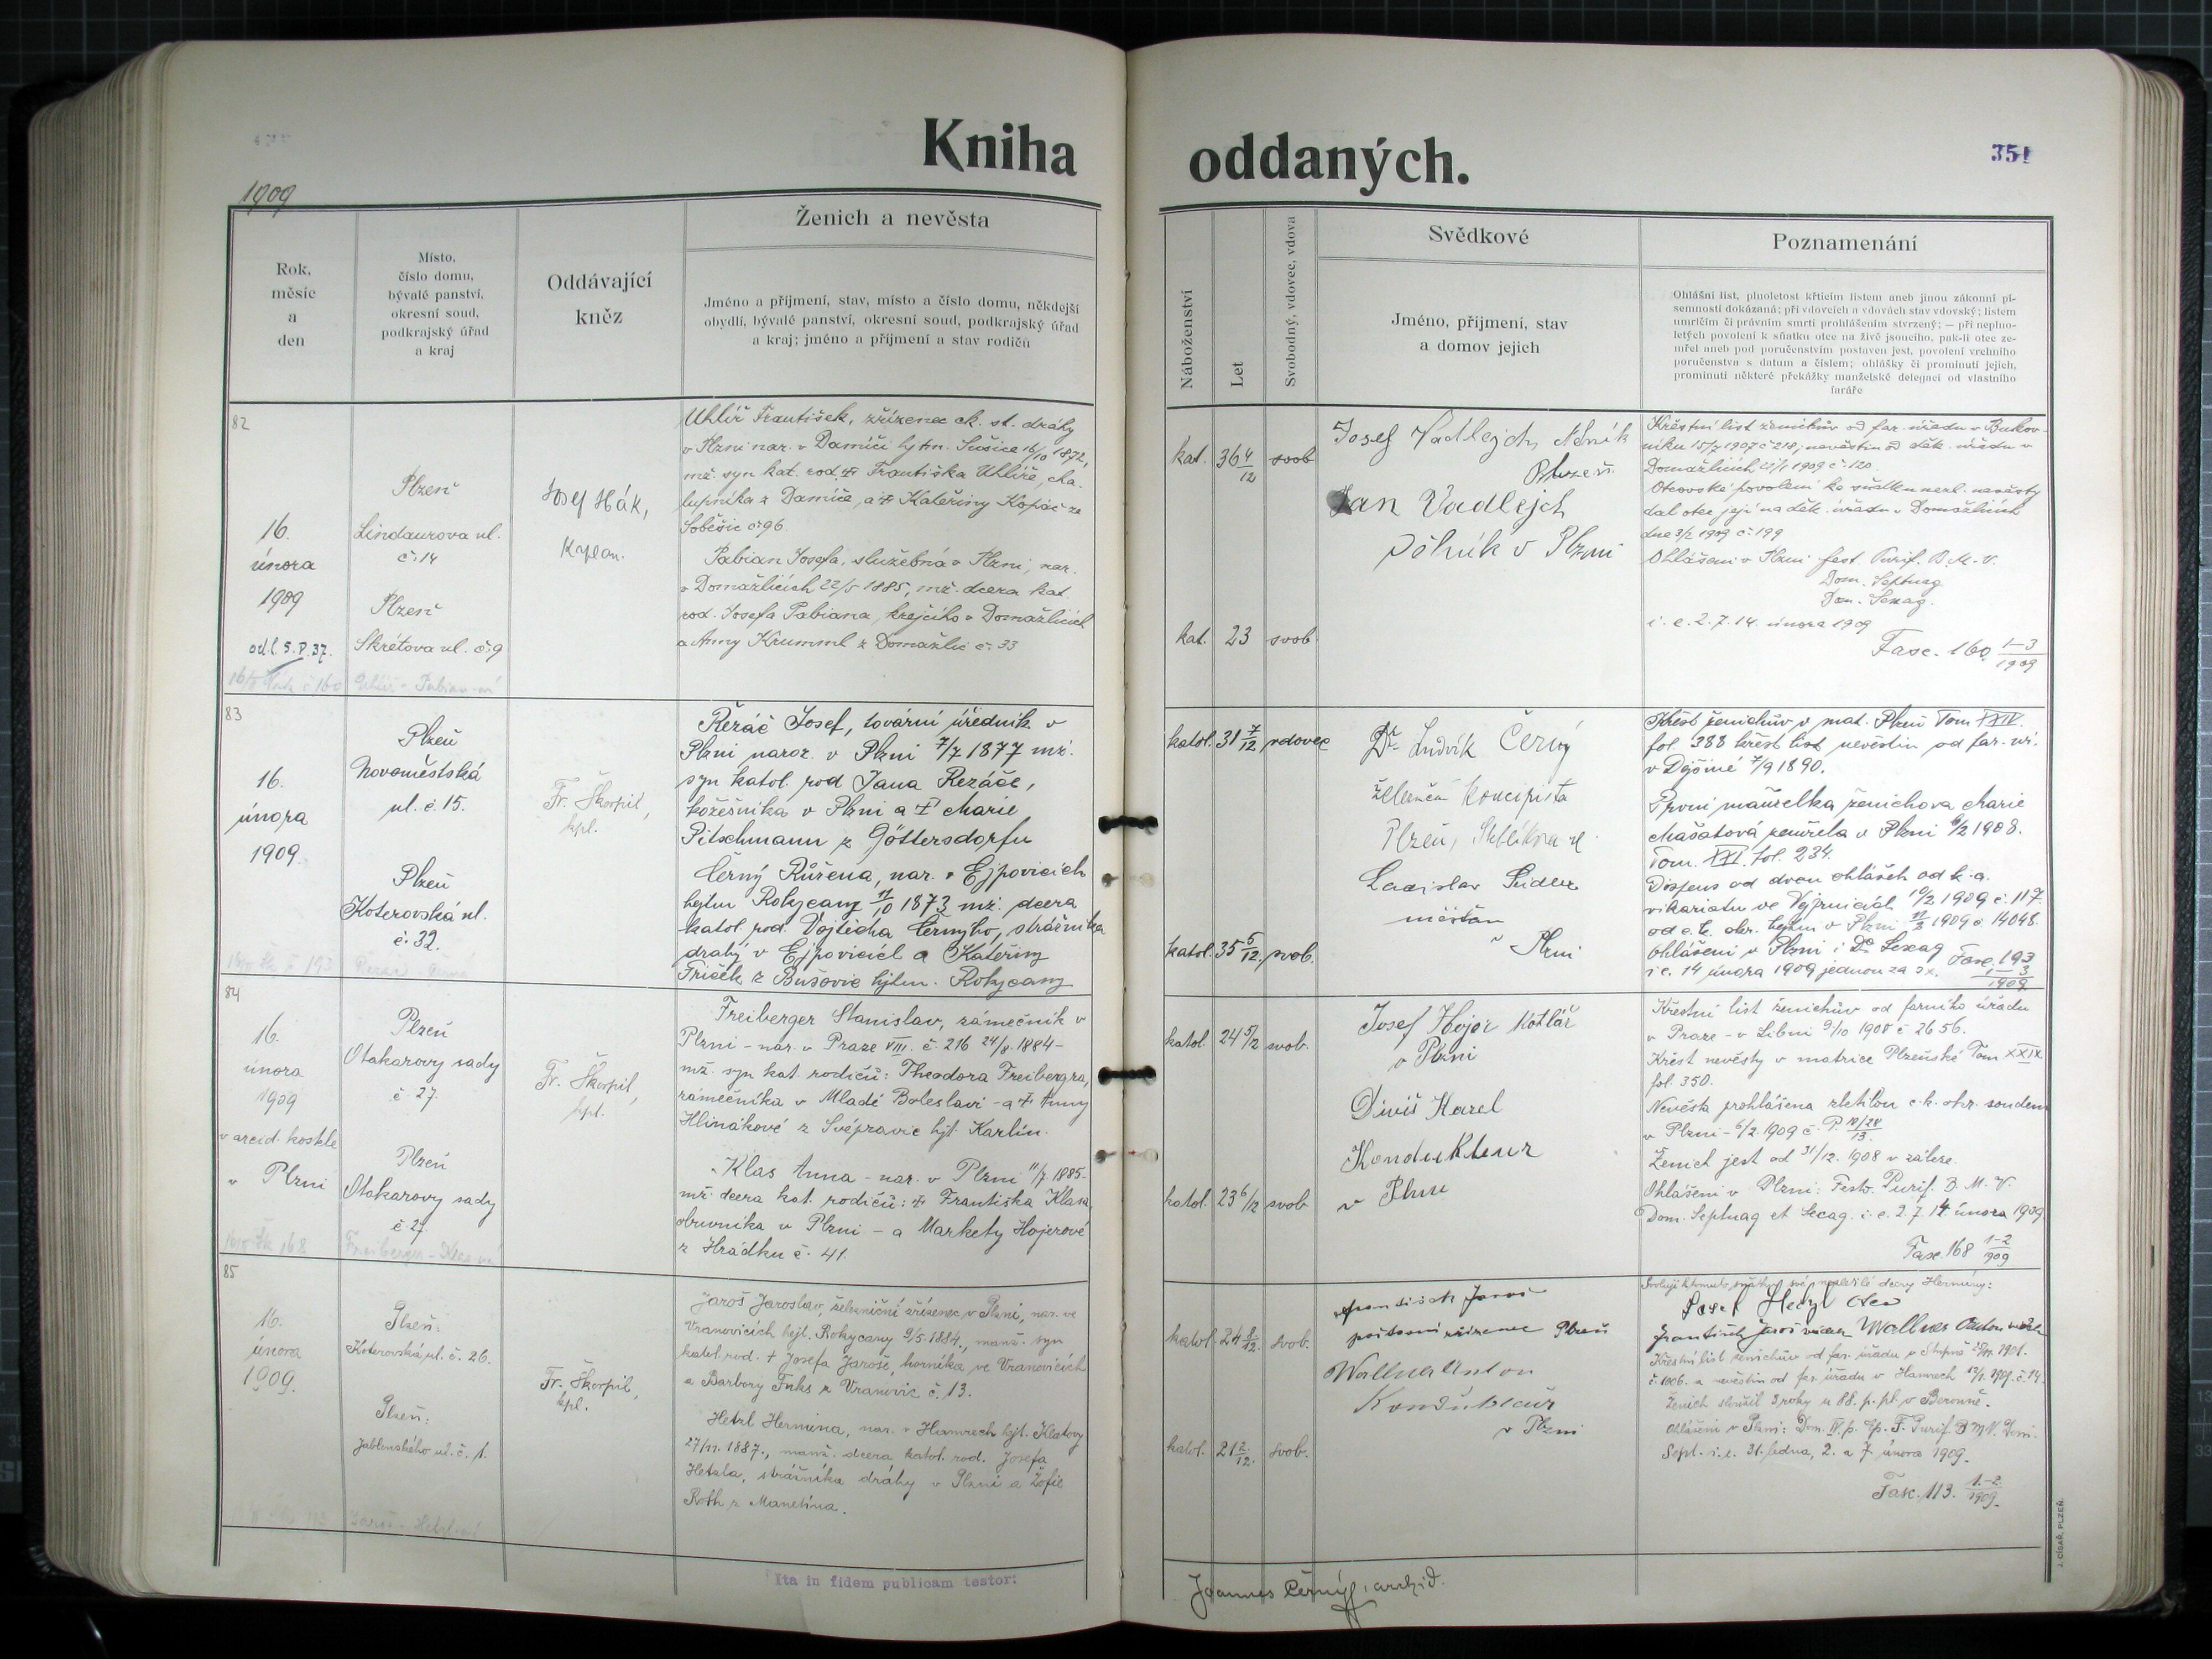 Kniha oddaných.
351
1909
Rok,
měsíc
a
den
Místo,
číslo domu,
bývalé panství,
okresní soud,
podkrajský úřad
a kraj
Oddávající
kněz
Ženich a nevěsta
Jméno a příjmení, stav, místo a číslo domu, někdejší
obydlí, bývalé panství, okresní soud, podkrajský úřad
a kraj; jméno a příjmení a stav rodičů
Náboženství
Let
Svobodný, vdovec, vdova
Svědkové
Jméno, přijmení, stav
a domov jejich
Poznamenání
Ohlášní list, plnoletost křticím listem aneb jinou zákonní pí-
semností dokázaná; při vdovcích a vdovách stav vdovský; listem
umrlčím či právním smrti prohlášením stvrzený; — při neplno-
letých povolení k sňatku otce na živě jsoucího, pak-li otec ze-
mřel aneb pod poručenstvím postaven jest, povolení vrchního
poručenstva s datum a číslem; ohlášky či prominutí jejich,
prominutí některé překážky manželské delegací od vlastního
faráře
82
16.
února
1909
odl. 5. P. 37.
Plzeň
Lindaurova ul.
č. 14
Plzeň
Skrétova ul. č. 9
Josef Hák,
Kaplan.
Uhlíř František, zřízenec ck. st. dráhy
v Plzni nar. v Damíči hejtm. Sušice 16/10 1872,
mž. syn kat. rod. † Františka Uhlíře, cha-
lupníka z Damíče, a † Kateřiny Kopáč ze
Soběšic č. 96
Fabian Josefa, služebná v Plzni, nar.
v Domažlicích 22/5 1885, mž. dcera kat.
rod. Josefa Fabiana, krejčího v Domažlicích
a Anny Krumml z Domažlic č. 33
kat. 36 4/12 svob
kat. 23 svob
Josef Vadlejch, dělník
Plzeň
Jan Vadlejch
dělník v Plzni
Křestní list ženichův od far. úřadu v Bukov-
níku 15/7 1907 č. 218; nevěstin od děk. úřadu v
Domažlicích 1909 č. 120.
Otcovské povolení ke sňatku nezl. nevěsty
dal otec její na děk. úřadu v Domažlicích
dne 3/2 1909 č. 199
Ohlášeni v Plzni fest. Purif. B. M. V.
Dom. Septuag.
Dom. Sexag.
i. e. 2. 7. 14. února 1909
Fasc. 160 1-3/1909
83
16.
února
1909
Plzeň
Novoměstská
ul. č. 15.
Plzeň
Koterovská ul.
č. 32.
Fr. Škorpil,
kpl.
Řezáč Josef, tovární úředník v
Plzni naroz. v Plzni 7/7 1877 mž.
syn katol. rod Jana Rezáče,
kožešníka v Plzni a † Marie
Pitschmann z Göttersdorfu
Černý Růžena, nar. v Ejpovicích
hejtm Rokycany 11/10 1873 mž. dcera
katol. rod. Vojtěcha Černyho, strážníka
drahý v Ejpovicích a Kateřiny
Triček z Bušovic hejtm. Rokycany
katol. 31 7/12 vdovec
katol. 35 5/12 svob.
Dr. Ludvík Černý
železniční koncipista
Plzeň,
Ladislav
měšťan
v Plzni
Křest ženichův v mat. Plzeň Tom XXIV.
fol. 388 křest. list nevěstin od far. úř.
v Dýšině 7/9 1890.
První manželka ženichova Marie
Mašatová zemřela v Plzni 6/2 1908.
Tom. XXI. fol. 234.
Dispens od dvou ohlášek od k. a.
vikariatu ve Vejprnicích 10/2 1909 č. 117.
od c. k. okr. hejtm v Plzni 11/2 1909 č. 14048.
Ohlášeni v Plzni: Do Sexag
i. e. 14 února 1909 jednou za 3x.
Fasc. 193 1-3/1909
84
16.
února
1909
v arcid. kostele
v Plzni
Plzeň
Otakarovy sady
č. 27.
Plzeň
Otakarovy sady
č 27.
Fr. Škorpil,
kpl.
Freiberger Stanislav, zámečník v
Plzni - nar. v Praze VIII. č. 216 24/8. 1884 -
mž. syn kat. rodičů: Theodora Freibergra,
zámečníka v Mladé Boleslavi - a † Anny
Hlinákové z Svépravic hjt. Karlín.
Klas Anna - nar. v Plzni 11/7. 1885 -
mž. dcera kat. rodičů: † Františka Klasa
obuvníka v Plzni - a Markety Hojerové
z Hrádku č. 41.
katol. 24 5/12 svob.
katol. 23 6/12 svob
Josef Hojer kotlář
v Plzni
Diviš Karel
Kondukteur
v Plzni
Křestní list ženichův od farního úřadu
v Praze - v Libni 9/10 1908 č 2656.
Křest nevěsty v matrice Plzeňské Tom XXIX
fol. 350.
Nevěsta prohlášena zletilou c. k. okr. soudem
v Plzni - 6/2. 1909 č.
Ženich jest od 31/12. 1908 v záloze.
Ohlášeni v Plzni: Festo. Purif. B. M. V.
Dom. Septuag et Sexag. i. e. 2. 7. 14. února 1909
Fasc. 168 1-2/909
85
16.
února
1909.
Plzeň:
Koterovská ul. č. 26.
Plzeň:
Jablonského ul. č. 1.
Fr. Škorpil,
kpl.
Jaroš Jaroslav, železniční zřízenec v Plzni, nar. ve
Vranovicích hejt. Rokycany 9/5. 1884., manž. syn
katol. rod. † Josefa Jaroše, horníka ve Vranovicích
a Barbory Fuks z Vranovic č. 13.
Hetzl Hermina, nar. v Hamrech hjt. Klatovy
27/11. 1887., manž. dcera katol. rod. Josefa
Hetzla, strážníka dráhy v Plzni a Žofie
Roth z Manetína.
katol. 24 8/12. svob.
katol. 21 2/12. svob.
František Jaroš
poštovní zřízenec Plzeň
Wallner Anton
Kondukteur
v Plzni
Svoluji k tomuto sňatku své nezletilé dcery Herminy:
Josef Hetzl otec
František Jaroš svědek Wallner Anton svědek
Křestní list ženichův od far. úřadu v Stupně 1901.
č. 1006. a nevěstin od far. úřadu v Hamrech 1909. č. 14.
Ženich sloužil 3 roky u 88. p. pl. v Berouně.
Ohlášeni v Plzni: Dom. IV. p. Ep. F. Purif. B M V. Dom.
Sept. i. e. 31. ledna, 2. a 7. února 1909.
Fasc. 113. 1.-2./1909.
Ita in fidem publicam testor:
Joannes Černý, archid.
J. CÍSAŘ, PLZEŇ.